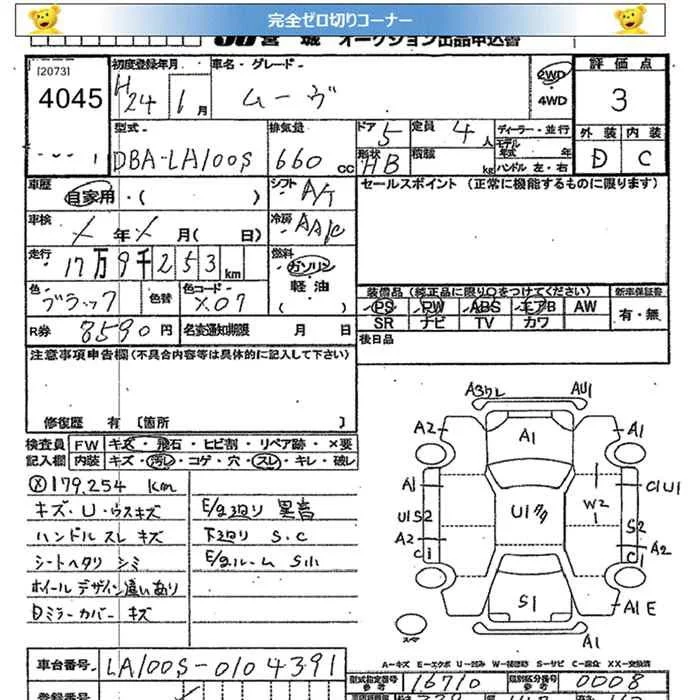 完全ゼロ切りコーナー
宮城 オークション出品申込書
[2073] 初度登録年月 車名・グレード 評価点
4045 H24 1月 ムーヴ 2WD・4WD 3
型式 排気量 ドア 5 定員 4人 ディーラー・並行 外装 内装
DBA-LA100S 660cc 形状 HB 積載 kg モデル年式 年 ハンドル 左・右 D C
車歴 自家用・( ) シフト A/T セールスポイント(正常に機能するものに限ります)
車検 年 月(日) 冷房 AAC
走行 17万9千253km 燃料 ガソリン・軽油 ( )
色 ブラック 色替 色コード X07 装備品(純正品に限り○をつけてください) 新車保証書
PS PW ABS エアB AW 有・無
R券 8590円 名変通知期限 月 日 SR ナビ TV カワ
注意事項申告欄(不具合内容等は具体的に記入して下さい) 後日品
修復歴 有 [箇所 ]
検査員記入欄 FW キズ・飛石・ヒビ割・リペア跡・×要
内装 キズ・汚レ・コゲ・穴・スレ・キレ・破レ
Ⓧ179,254 Km
キズ・U・ウスキズ E/g廻り 異音
ハンドル スレ キズ 下廻り S.C
シートヘタリ シミ E/gルーム S小
ホイール デザイン違いあり
Dミラーカバー キズ
A3クレ AU1
A2 A1 A1
A1 CIU1
U1S2 U1タタ W2 1 S2
A2 C1 C1 A2
S1 A1E
スペア A1
A-キズ E-エクボ U-凹み W-補修跡 S-サビ C-腐食 XX-交換済
車台番号 LA100S-0104391 型式指定番号 参考 16710 類別区分番号 参考 0008
登録番号